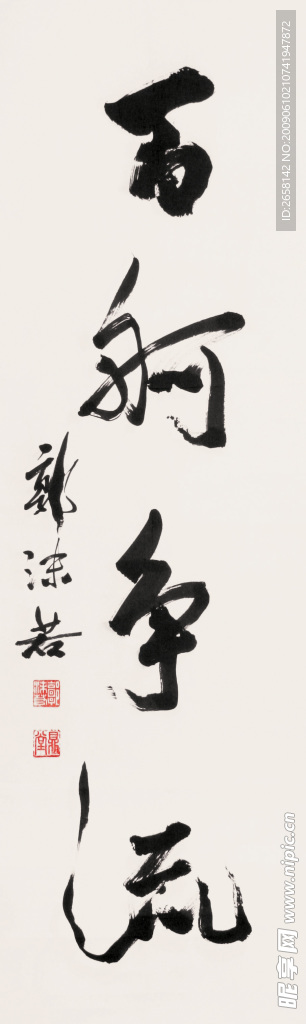 百舸争流
郭沫若
ID:2658142 NO:20090610210741947872
昵享网 www.nipic.cn